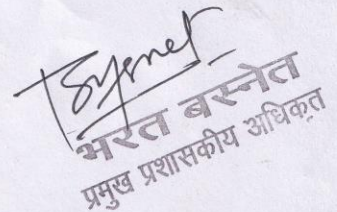 भरत बस्नेत
प्रमुख प्रशासकीय अधिकृत